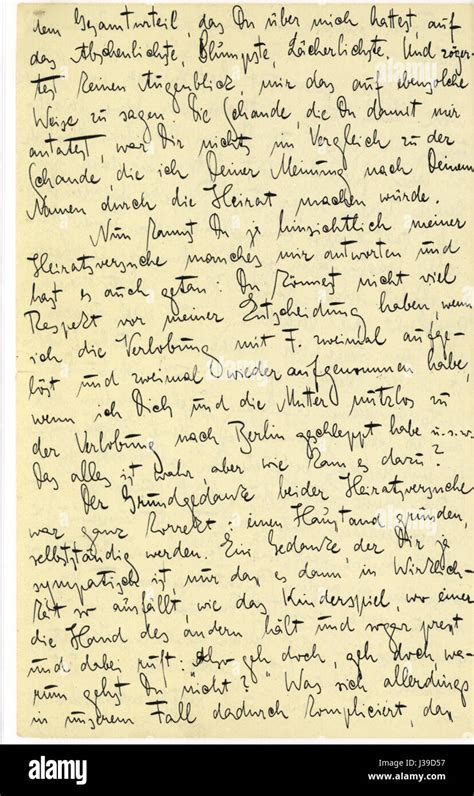 dem Gesamturteil, das Du über mich hattest, auf
das Abscheulichste, Plumpste, Lächerlichste. Und zöger-
test keinen Augenblick, mir das auf ebensolche
Weise zu sagen. Die Schande, die Du damit mir
antatest, war Dir nichts im Vergleich zu der
Schande, die ich Deiner Meinung nach Deinem
Namen durch die Heirat machen würde.
Nun kannst Du ja hinsichtlich meiner
Heiratsversuche manches mir antworten und
hast es auch getan: Du könntest nicht viel
Respekt vor meiner Entscheidung haben, wenn
ich die Verlobung mit F. zweimal aufge-
löst und zweimal wieder aufgenommen habe,
wenn ich Dich und die Mutter nutzlos zu
der Verlobung nach Berlin geschleppt habe u.s.w.
Das alles ist wahr, aber wie kam es dazu?
Der Grundgedanke beider Heiratsversuche
war ganz korrekt: einen Hausstand gründen,
selbstständig werden. Ein Gedanke, der Dir ja
sympatisch ist, nur daß es dann in Wirklich-
keit so ausfällt, wie das Kinderspiel, wo einer
die Hand des andern hält und sogar preßt
und dabei ruft: "Also geh doch, geh doch, wa-
rum gehst Du nicht?" Was sich allerdings
in unserem Fall dadurch kompliciert, daß
alamy
alamy
Alamy Stock Photo
J39D57